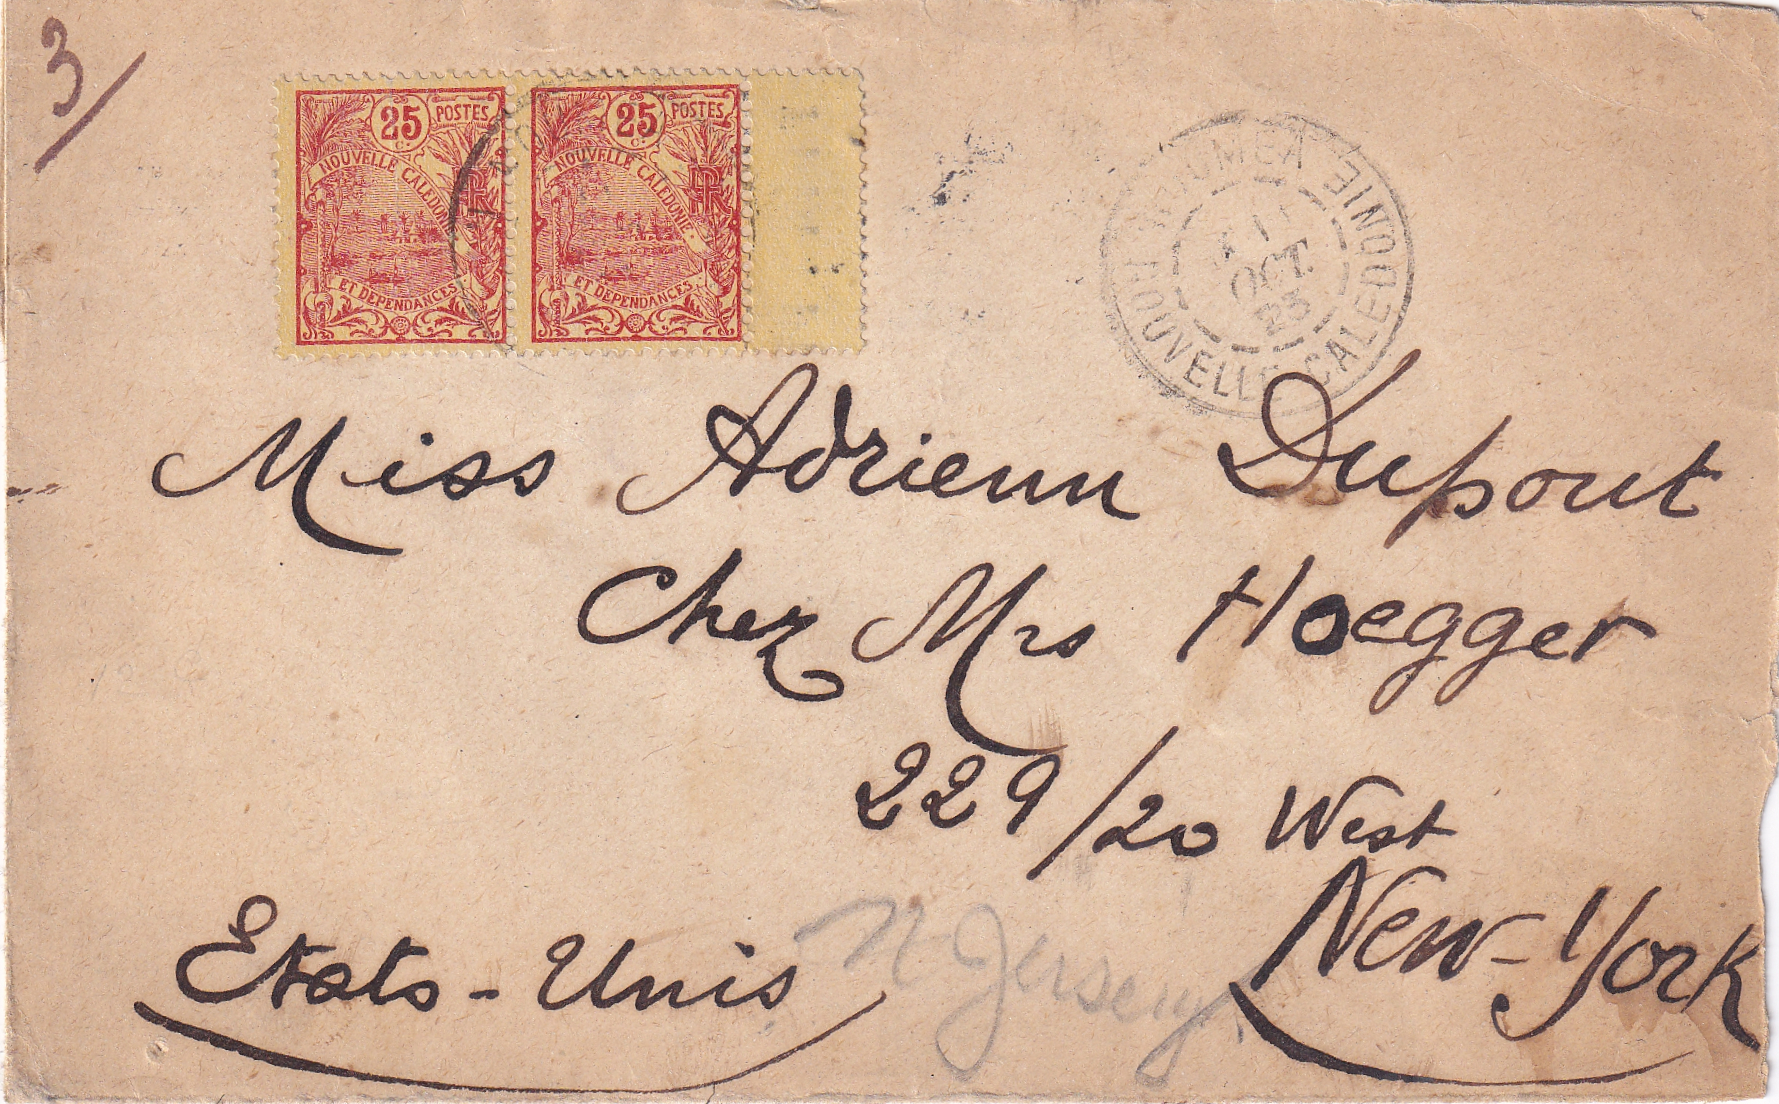 3/
25 c. POSTES
NOUVELLE CALEDONIE
RF
ET DEPENDANCES
25 c. POSTES
NOUVELLE CALEDONIE
RF
ET DEPENDANCES
NOUMEA
OCT.
23
NOUVELLE CALEDONIE
Miss Adrienn Dupont
Chez Mrs Hoegger
229/20 West
New-York
Etats-Unis
N Jersey